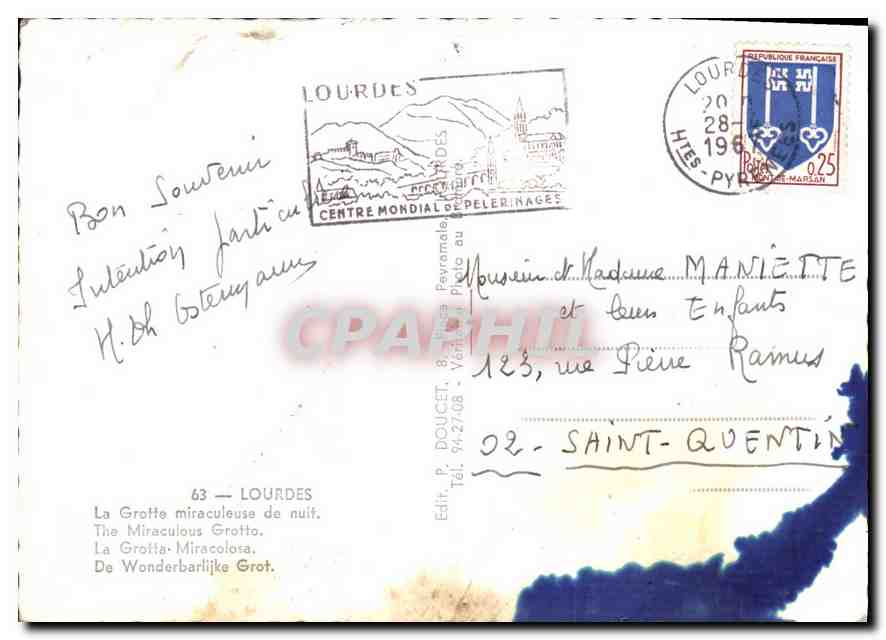 LOURDES
CENTRE MONDIAL DE PELERINAGES
LOURDES
28-
196
HTES-PYRENEES
REPUBLIQUE FRANÇAISE
Postes
0,25
MONT-DE-MARSAN
Bon Souvenir
Intention particul
H. Oh
Monsieur et Madame MANIETTE
et leurs Enfants
123, rue Pierre Ramus
02 - SAINT-QUENTIN
CPAPHIL
Edit. P. DOUCET, 8, Place Peyramale, LOURDES
Tél. 94-27-08 - Véritable Photo au Bromure
63 — LOURDES
La Grotte miraculeuse de nuit.
The Miraculous Grotto.
La Grotta Miracolosa.
De Wonderbarlijke Grot.